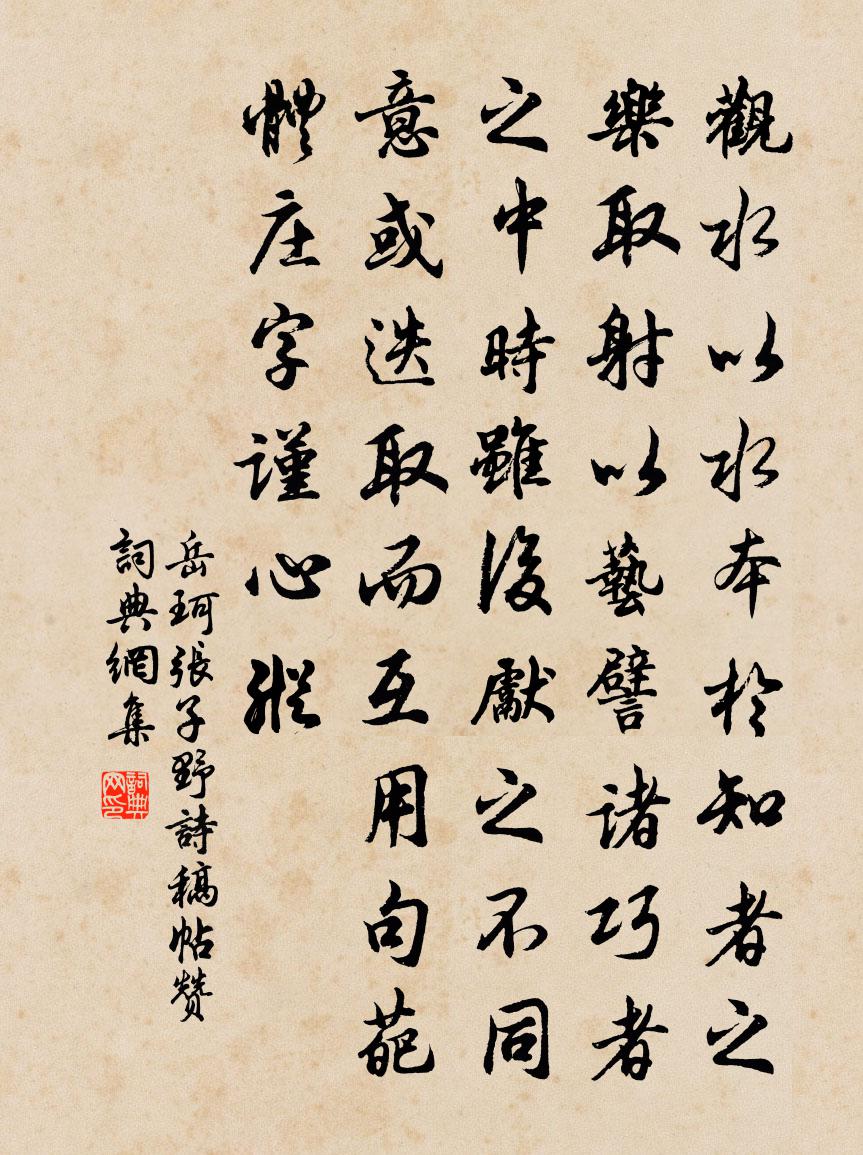 觀水以水本於知者之
樂取射以藝譬諸巧者
之中時雖後獻之不同
意或迭取而互用句葩
體庄字謹心縱
岳珂張子野詩稿帖贊
詞典網集
詞典网印